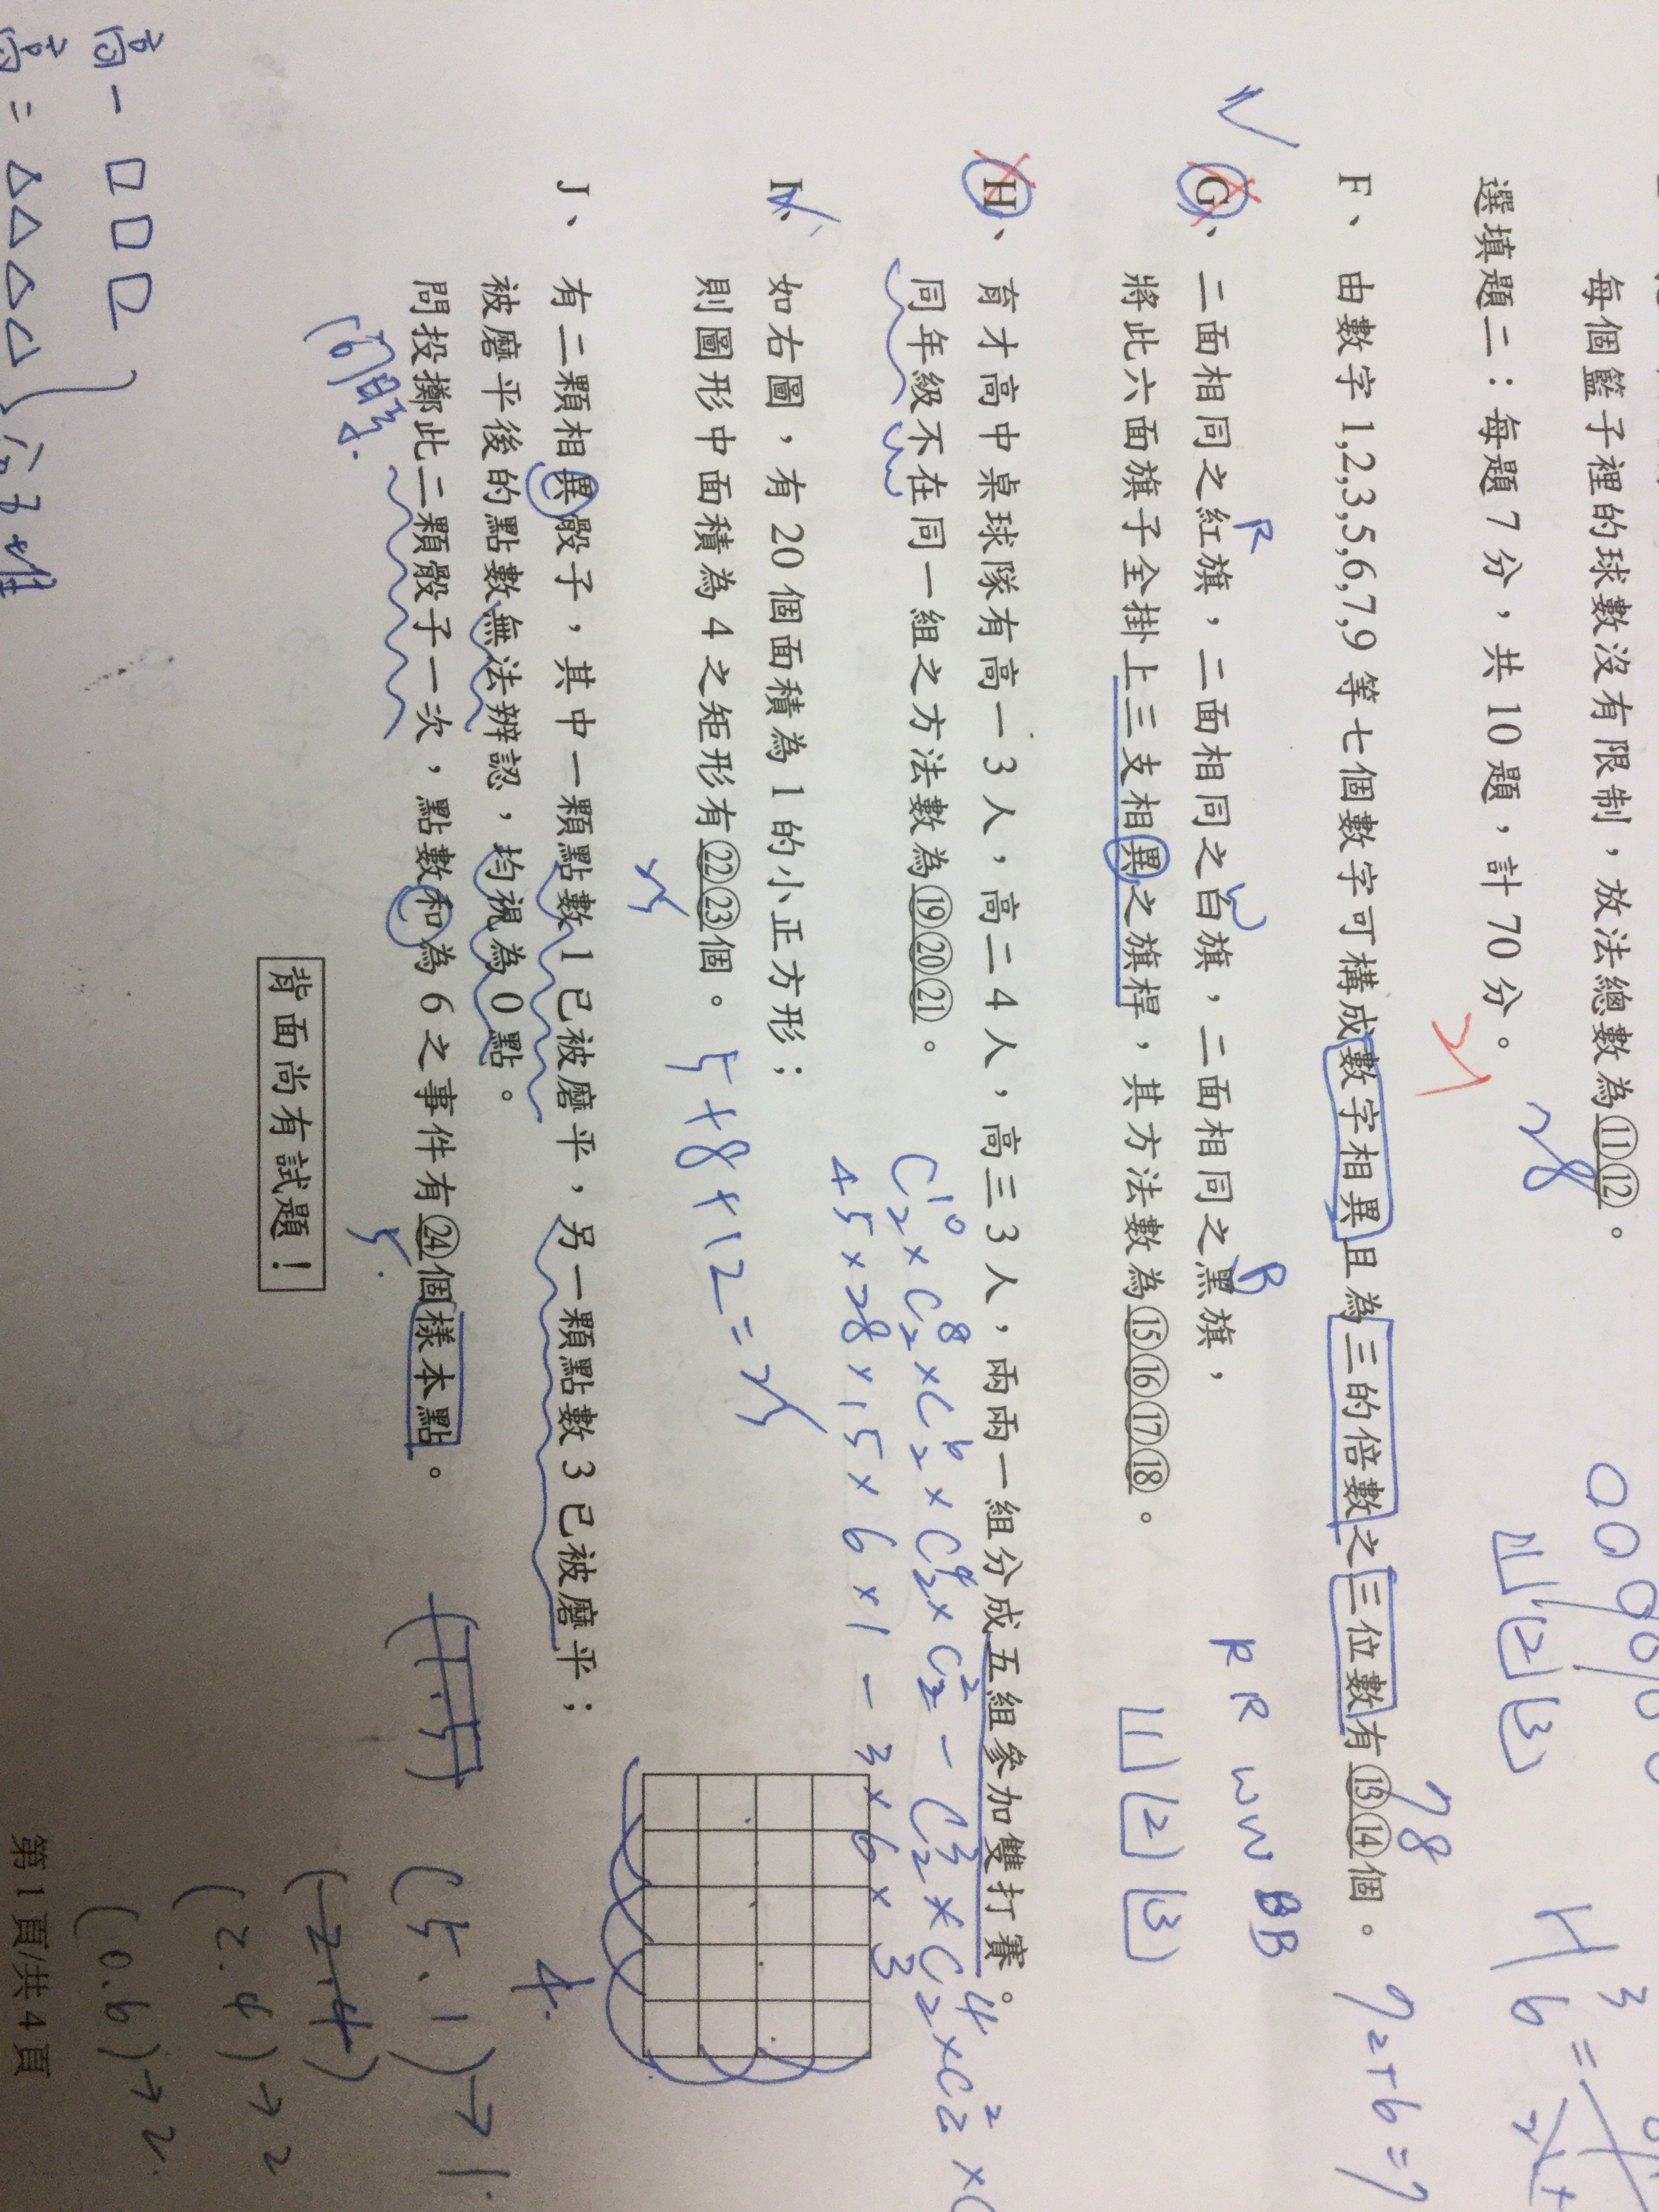 每個籃子裡的球數沒有限制，放法總數為⑪⑫。
28
選填題二：每題 7 分，共 10 題，計 70 分。
1 2 3
F、由數字 1,2,3,5,6,7,9 等七個數字可構成數字相異且為三的倍數之三位數有⑬⑭個。
78
72+6=7
R W B
G、二面相同之紅旗，二面相同之白旗，二面相同之黑旗，
RR WW BB
將此六面旗子全掛上三支相異之旗桿，其方法數為⑮⑯⑰⑱。
1 2 3
H、育才高中桌球隊有高一 3 人，高二 4 人，高三 3 人，兩兩一組分成五組參加雙打賽。
同年級不在同一組之方法數為⑲⑳㉑。
C¹⁰₂×C⁸₂×C⁶₂×C⁴₂×C²₂-C³₂×C⁴₂×C²₂×C
45×28×15×6×1-3×6×3
I、如右圖，有 20 個面積為 1 的小正方形；
則圖形中面積為 4 之矩形有㉒㉓個。
5+8+12=25
25
J、有二顆相異骰子，其中一顆點數 1 已被磨平，另一顆點數 3 已被磨平；
4.
被磨平後的點數無法辨認，均視為 0 點。
問投擲此二顆骰子一次，點數和為 6 之事件有㉔個樣本點。
5.
(1.5)
(5、1)→1.
(2,4)
(2.4)→2
(0.6)→2.
背面尚有試題！
第 1 頁/共 4 頁
高一 □□□
高二 △△△△